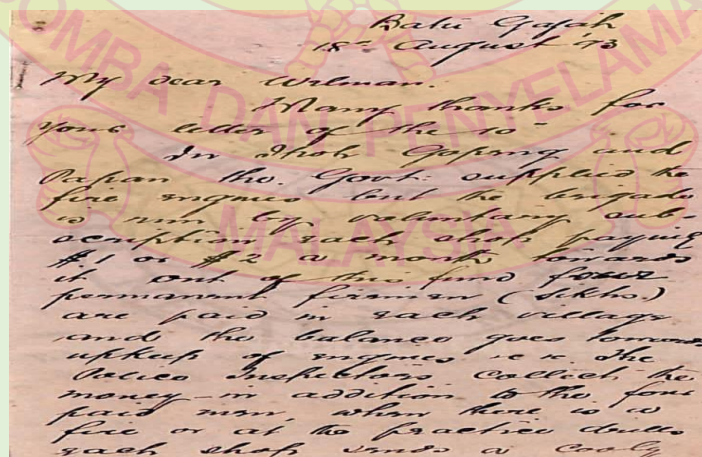 Batu Gajah
15th August 93
My dear Welman.
Many thanks for
your letter of the 10th
In Ipoh Gopeng and
Papan the Govt. supplied the
fire engines but the brigade
is run by voluntary sub-
scription each shop paying
$1 or $2 a month towards
it out of this fund four
permanent firemen (Sikhs)
are paid in each village
and the balance goes towards
upkeep of engines &c. The
Police Inspectors collect the
money - in addition to the four
paid men, when there is a
fire or at the practice drills
each shop sends a cooly
BOMBA DAN PENYELAMAT
MALAYSIA